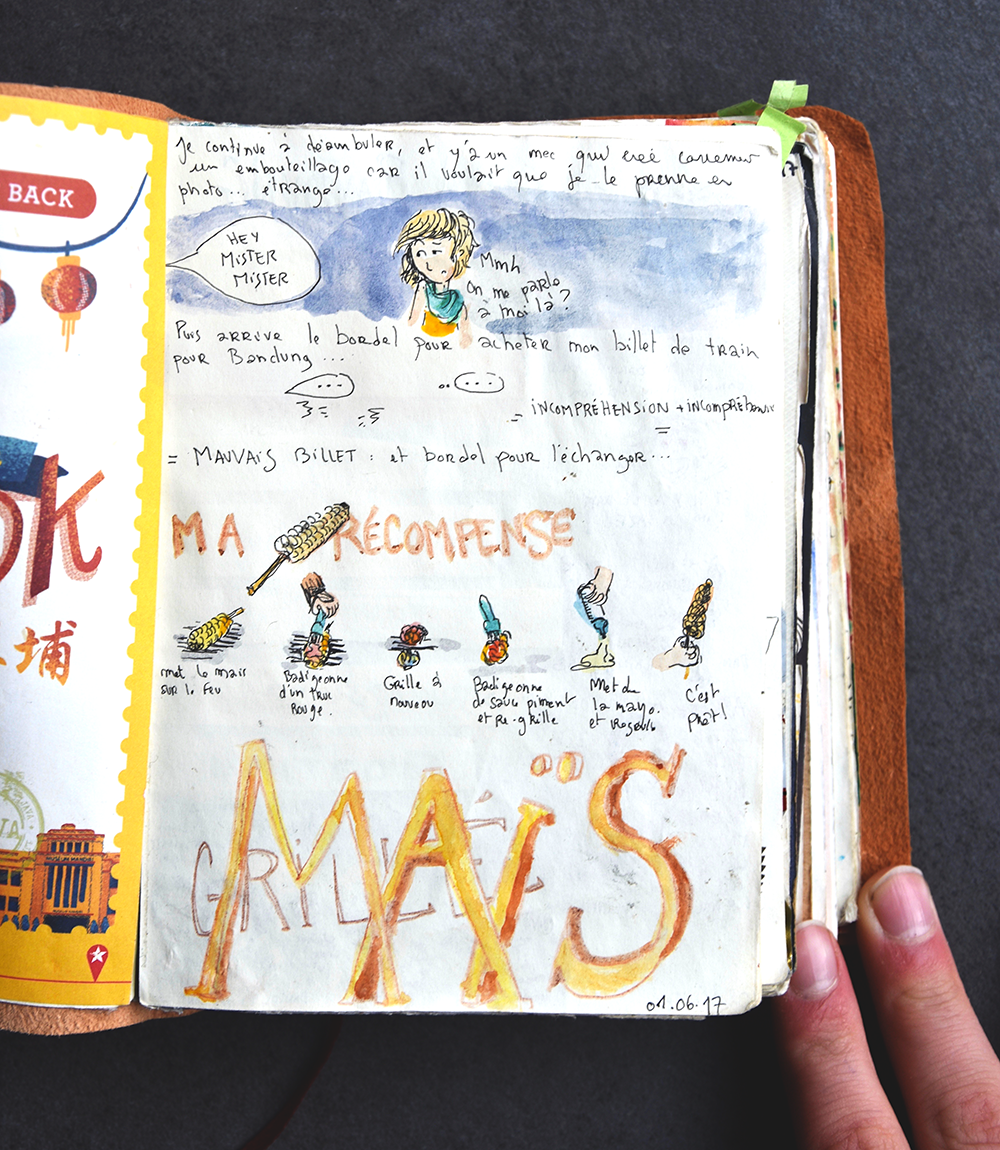 BACK
埔
MUSEUM MANDIRI
Je continue à déambuler, et y'a un mec qui créé carrément
un embouteillage car il voulait que je le prenne en
photo... étrange...
HEY
MISTER
MISTER
Mmh
On me parle
à moi là ?
Puis arrive le bordel pour acheter mon billet de train
pour Bandung ...
...
...
= INCOMPRÉHENSION + INCOMPRÉHENSION
= MAUVAIS BILLET : et bordel pour l'échanger...
MA RÉCOMPENSE
met le maïs
sur le feu
Badigeonne
d'un truc
Rouge.
Grille à
nouveau
Badigeonne
de sauce piment
et Re-grille
Met de
la mayo.
et
c'est
prêt !
MAÏS
GRILLÉ
01.06.17